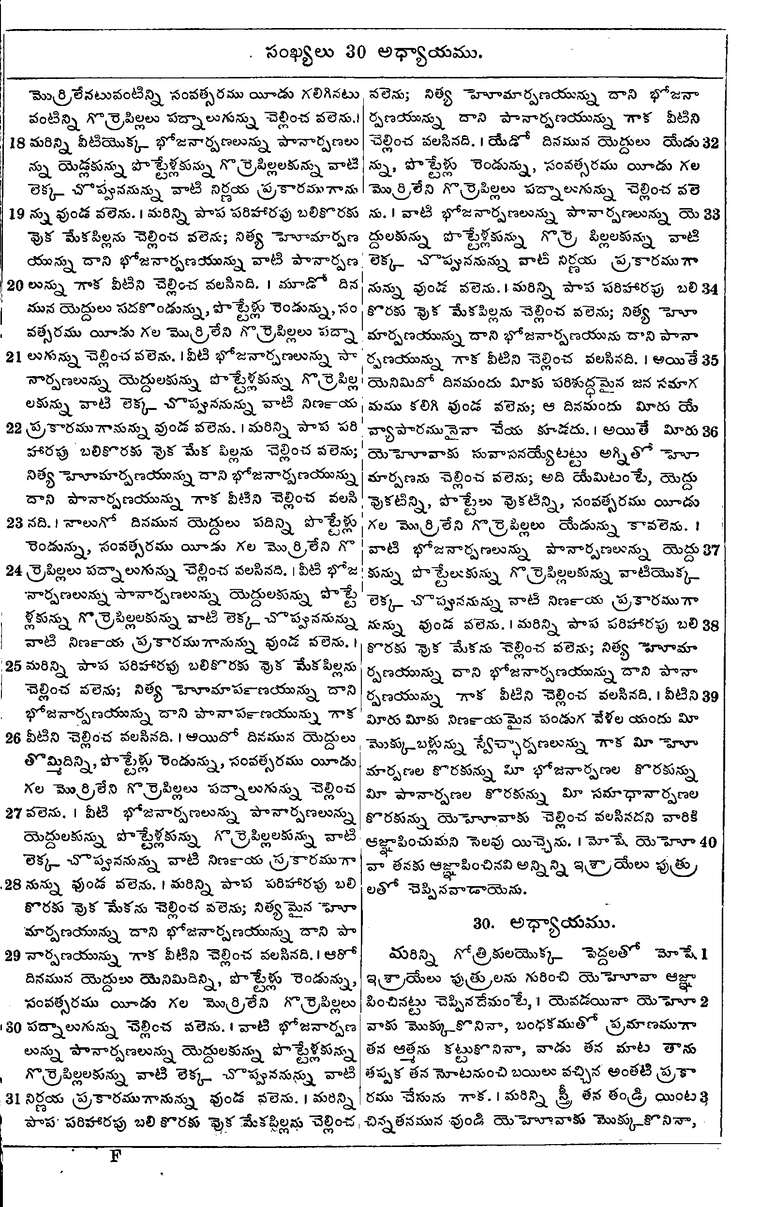 సంఖ్యలు 30 అధ్యాయము.
మొర్రిలేనటువంటిన్ని సంవత్సరము యీడు గలిగినటు
వంటిన్ని గొర్రెపిల్లలు పద్నాలుగున్ను చెల్లించ వలెను.।
18 మరిన్ని వీటియొక్క భోజనార్పణలున్ను పానార్పణలు
న్ను యెడ్లకున్ను పొట్టేళ్లకున్ను గొర్రెపిల్లలకున్ను వాటి
లెక్క చొప్పుననున్ను వాటి నిర్ణయ ప్రకారముగాను
19 న్ను వుండ వలెను.। మరిన్ని పాప పరిహారపు బలికొరకు
వుక మేకపిల్లను చెల్లించ వలెను; నిత్య హెూమార్పణ
యున్ను దాని భోజనార్పణయున్ను వాటి పానార్పణ
20 లున్ను గాక వీటిని చెల్లించ వలసినది. । మూడో దిన
మున యెద్దులు పదకొండున్ను, పొట్టేళ్లు రెండున్ను, సం
వత్సరము యీడు గల మొర్రిలేని గొర్రెపిల్లలు పద్నా
21 లుగున్ను చెల్లించ వలెను. ।వీటి భోజనార్పణలున్ను పా
నార్పణలున్ను యెద్దులకున్ను పొట్టేళ్లకున్ను గొర్రెపిల్ల
లకున్ను వాటి లెక్క చొప్పుననున్ను వాటి నిర్ణయ
22 ప్రకారముగానున్ను వుండ వలెను. ।మరిన్ని పాప పరి
హారపు బలికొరకు వుక మేక పిల్లను చెల్లించ వలెను;
నిత్య హెూమార్పణయున్ను దాని భోజనార్పణయున్ను
దాని పానార్పణయున్ను గాక వీటిని చెల్లించ వలసి
23 నది. । నాలుగో దినమున యెద్దులు పదిన్ని పొట్టేళ్లు
రెండున్ను, సంవత్సరము యీడు గల మొర్రిలేని గొ
24 ర్రెపిల్లలు పద్నాలుగున్ను చెల్లించ వలసినది. ।వీటి భోజ
నార్పణలున్ను పానార్పణలున్ను యెద్దులకున్ను పొట్టే
ళ్లకున్ను గొర్రెపిల్లలకున్ను వాటి లెక్క చొప్పుననున్ను
వాటి నిర్ణయ ప్రకారముగానున్ను వుండ వలెను. ।
25 మరిన్ని పాప పరిహారపు బలికొరకు వుక మేకపిల్లను
చెల్లించ వలెను; నిత్య హెూమార్పణయున్ను దాని
భోజనార్పణయున్ను దాని పానార్పణయున్ను గాక
26 వీటిని చెల్లించ వలసినది. । ఆయిదో దినమున యెద్దులు
తొమ్మిదిన్ని, పొట్టేళ్లు రెండున్ను, సంవత్సరము యీడు
గల మొర్రిలేని గొర్రెపిల్లలు పద్నాలుగున్ను చెల్లించ
27 వలెను. । వీటి భోజనార్పణలున్ను పానార్పణలున్ను
యెద్దులకున్ను పొట్టేళ్లకున్ను గొర్రెపిల్లలకున్ను వాటి
లెక్క చొప్పుననున్ను వాటి నిర్ణయ ప్రకారముగా
28 నున్ను వుండ వలెను. ।మరిన్ని పాప పరిహారపు బలి
కొరకు వుక మేకను చెల్లించ వలెను; నిత్యమైన హెూ
మార్పణయున్ను దాని భోజనార్పణయున్ను దాని పా
29 నార్పణయున్ను గాక వీటిని చెల్లించ వలసినది.। ఆరో
దినమున యెద్దులు యెనిమిదిన్ని, పొట్టేళ్లు రెండున్ను,
సంవత్సరము యీడు గల మొర్రిలేని గొర్రెపిల్లలు
30 పద్నాలుగున్ను చెల్లించ వలెను. ।వాటి భోజనార్పణ
లున్ను పానార్పణలున్ను యెద్దులకున్ను పొట్టేళ్లకున్ను
గొర్రెపిల్లలకున్ను వాటి లెక్క చొప్పుననున్ను వాటి
31 నిర్ణయ ప్రకారముగానున్ను వుండ వలెను. ।మరిన్ని
పాప పరిహారపు బలి కొరకు వుక మేకపిల్లను చెల్లించ
వలెను; నిత్య హెూమార్పణయున్ను దాని భోజనా
ర్పణయున్ను దాని పానార్పణయున్ను గాక వీటిని
చెల్లించ వలసినది. ।యేడో దినమున యెద్దులు యేడు 32
న్ను, పొట్టేళ్లు రెండున్ను, సంవత్సరము యీడు గల
మొర్రిలేని గొర్రెపిల్లలు పద్నాలుగున్ను చెల్లించ వలె
ను. । వాటి భోజనార్పణలున్ను పానార్పణలున్ను యె 33
ద్దులకున్ను పొట్టేళ్లకున్ను గొర్రె పిల్లలకున్ను వాటి
లెక్క చొప్పుననున్ను వాటి నిర్ణయ ప్రకారముగా
నున్ను వుండ వలెను. ।మరిన్ని పాప పరిహారపు బలి 34
కొరకు వుక మేకపిల్లను చెల్లించ వలెను; నిత్య హెూ
మార్పణయున్ను దాని భోజనార్పణయును దాని పానా
ర్పణయున్ను గాక వీటిని చెల్లించ వలసినది. । అయితే 35
యెనిమిదో దినమందు మీకు పరిశుద్ధమైన జన సమాగ
మము కలిగి వుండ వలెను; ఆ దినమందు మీరు యే
వ్యాపారమునైనా చేయ కూడదు. । అయితే మీరు 36
యెహెూవాకు సువాసనయ్యేటట్టు అగ్నితో హెూ
మార్పణను చెల్లించ వలెను; అది యేమిటంటే, యెద్దు
వుకటిన్ని, పొట్టేలు వుకటిన్ని, సంవత్సరము యీడు
గల మొర్రిలేని గొర్రెపిల్లలు యేడున్ను కావలెను. ।
వాటి భోజనార్పణలున్ను పానార్పణలున్ను యెద్దు 37
కున్ను పొట్టేలుకున్ను గొర్రెపిల్లలకున్ను వాటియొక్క
లెక్క చొప్పుననున్ను వాటి నిర్ణయ ప్రకారముగా
నున్ను వుండ వలెను. ।మరిన్ని పాప పరిహారపు బలి 38
కొరకు వుక మేకను చెల్లించ వలెను; నిత్య హెూమా
ర్పణయున్ను దాని భోజనార్పణయున్ను దాని పానా
ర్పణయున్ను గాక వీటిని చెల్లించ వలసినది. । వీటిని 39
మీరు మీకు నిర్ణయమైన పండుగ వేళల యందు మీ
మొక్కుబళ్లున్ను స్వేచ్ఛార్పణలున్ను గాక మీ హెూ
మార్పణల కొరకున్ను మీ భోజనార్పణల కొరకున్ను
మీ పానార్పణల కొరకున్ను మీ సమాధానార్పణల
కొరకున్ను యెహెూవాకు చెల్లించ వలసినదని వారికి
ఆజ్ఞాపించుమని సెలవు యిచ్చెను. ।మోషే యెహెూ 40
వా తనకు ఆజ్ఞాపించినవి అన్నిన్ని ఇశ్రాయేలు పుత్రు
లతో చెప్పినవాడాయెను.
30. అధ్యాయము.
మరిన్ని గోత్రికులయొక్క పెద్దలతో మోషే 1
ఇశ్రాయేలు పుత్రులను గురించి యెహెూవా ఆజ్ఞా
పించినట్టు చెప్పినదేమంటే, । యెవడయినా యెహెూ 2
వాకు మొక్కుకొనినా, బంధకముతో ప్రమాణముగా
తన ఆత్మను కట్టుకొనినా, వాడు తన మాట తాను
తప్పక తన నోటనుంచి బయిలు వచ్చిన అంతటి ప్రకా
రము చేసును గాక. । మరిన్ని స్త్రీ తన తండ్రి యింట 3
చిన్నతనమున వుండి యెహెూవాకు మొక్కుకొనినా,
F